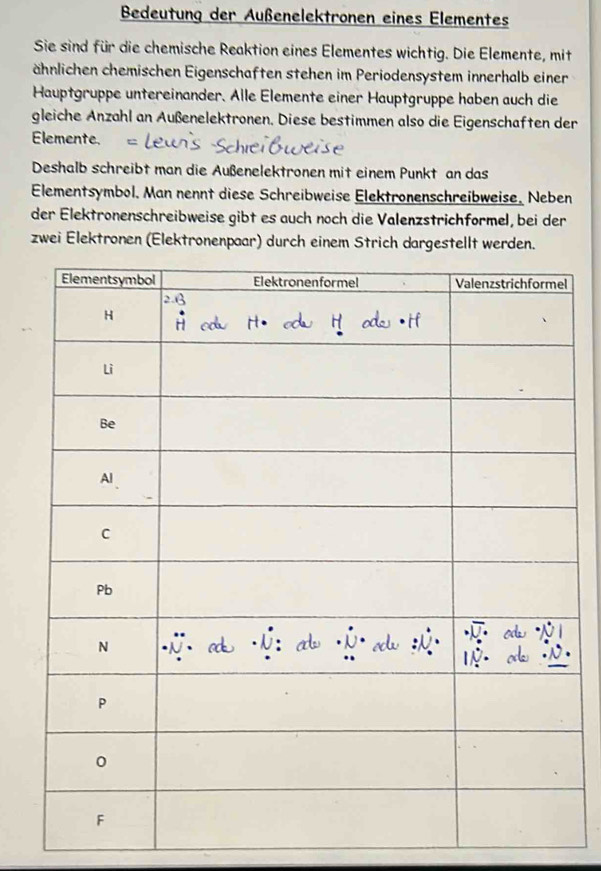 Bedeutung der Außenelektronen eines Elementes
Sie sind für die chemische Reaktion eines Elementes wichtig. Die Elemente, mit
ähnlichen chemischen Eigenschaften stehen im Periodensystem innerhalb einer
Hauptgruppe untereinander. Alle Elemente einer Hauptgruppe haben auch die
gleiche Anzahl an Außenelektronen. Diese bestimmen also die Eigenschaften der
Elemente. = Lewis-Schreibweise
Deshalb schreibt man die Außenelektronen mit einem Punkt an das
Elementsymbol. Man nennt diese Schreibweise Elektronenschreibweise. Neben
der Elektronenschreibweise gibt es auch noch die Valenzstrichformel, bei der
zwei Elektronen (Elektronenpaar) durch einem Strich dargestellt werden.
Elementsymbol Elektronenformel Valenzstrichformel
z.B
H Ḣ oder H• oder Ḥ oder •H
Li
Be
Al
C
Pb
N •N̤̈• oder •Ṇ̇: oder •Ṅ̤• oder :Ṇ̇• •Ṇ̄• oder •Ṇ̇|
|Ṇ̇• oder •Ṉ̇•
P
O
F